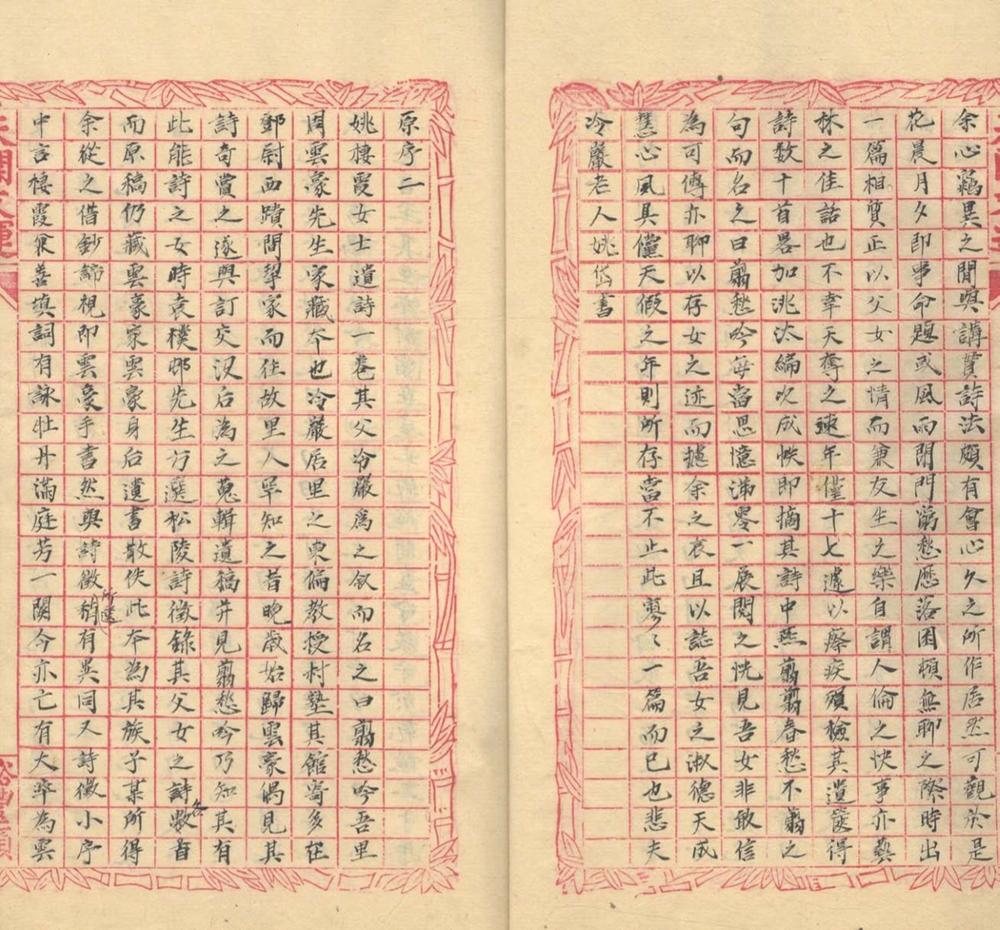 余心竊異之閒與講貫詩法頗有會心久之所作居然可觀於是
花晨月夕即事命題或風雨閉門窮愁歷落困頓無聊之際時出
一篇相質正以父女之情而兼友生之樂自謂人倫之快事亦藝
林之佳話也不幸天奪之速年僅十七遽以瘵疾殞檢其遺篋得
詩数十首畧加洮汰編次成帙即摘其詩中燕翦翦春愁不翦之
句而名之曰翦愁吟每當思憶涕零一展閱之恍見吾女非敢信
為可傳亦聊以存女之迹而攄余之哀且以誌吾女之淑德天成
慧心風具儻天假之年則所存當不止此寥〻一篇而已也悲夫
冷嚴老人姚岱書
原序二
姚棲霞女士遺詩一卷其父冷嚴為之叙而名之曰翦愁吟吾里
周雲豪先生家藏本也冷嚴居里之東偏教授村塾其館寄多在
鄧尉西蹟閒挈家而住故里人罕知之者晚歲始歸雲豪偶見其
詩奇賞之遂與訂交沒后為之蒐輯遺稿并見翦愁吟乃知其有
此能詩之女時袁樸邨先生方選松陵詩徵錄其父女之詩各数首
而原稿仍藏雲豪家雲豪身后遺書散佚此本為其族子某所得
余從之借鈔諦視即雲豪手書然與詩徵所選頗有異同又詩徵小序
中言棲霞兼善填詞有詠牡丹滿庭芳一闋今亦亡有大率為雲